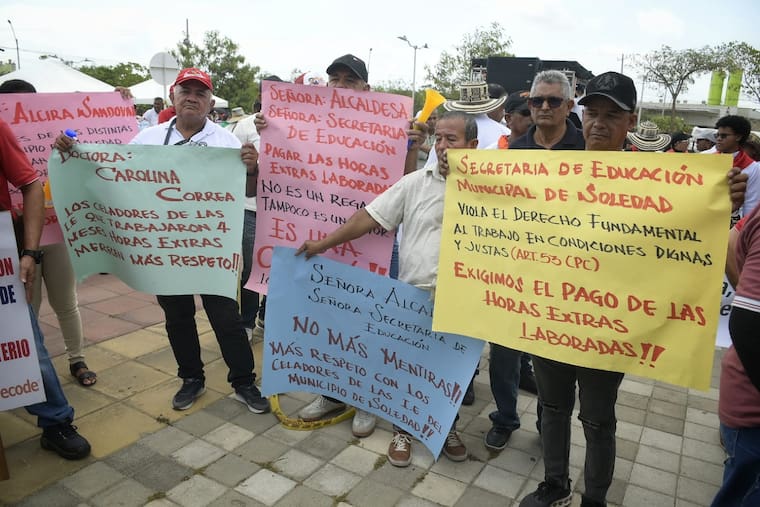 ALCIRA SANDOVAL
DISTINTAS
DOCTORA:
CAROLINA
CORREA
LOS CELADORES DE LAS
I.E QUE TRABAJARON 4
MESES HORAS EXTRAS
MERECEN MÁS RESPETO!!
SEÑORA: ALCALDESA
SEÑORA: SECRETARIA
DE EDUCACIÓN
PAGAR LAS HORAS
EXTRAS LABORADAS
NO ES UN
TAMPOCO ES UN
ES UNA
SEÑORA
SEÑORA SECRETARIA DE
EDUCACIÓN
NO MÁS MENTIRAS!!
MÁS RESPETO CON LOS
CELADORES DE LAS I.E DEL
MUNICIPIO DE SOLEDAD!!
SECRETARIA DE EDUCACIÓN
MUNICIPAL DE SOLEDAD
VIOLA EL DERECHO FUNDAMENTAL
AL TRABAJO EN CONDICIONES DIGNAS
Y JUSTAS (ART. 53 CPC)
EXIGIMOS EL PAGO DE LAS
HORAS EXTRAS
LABORADAS!!
DE
ecode